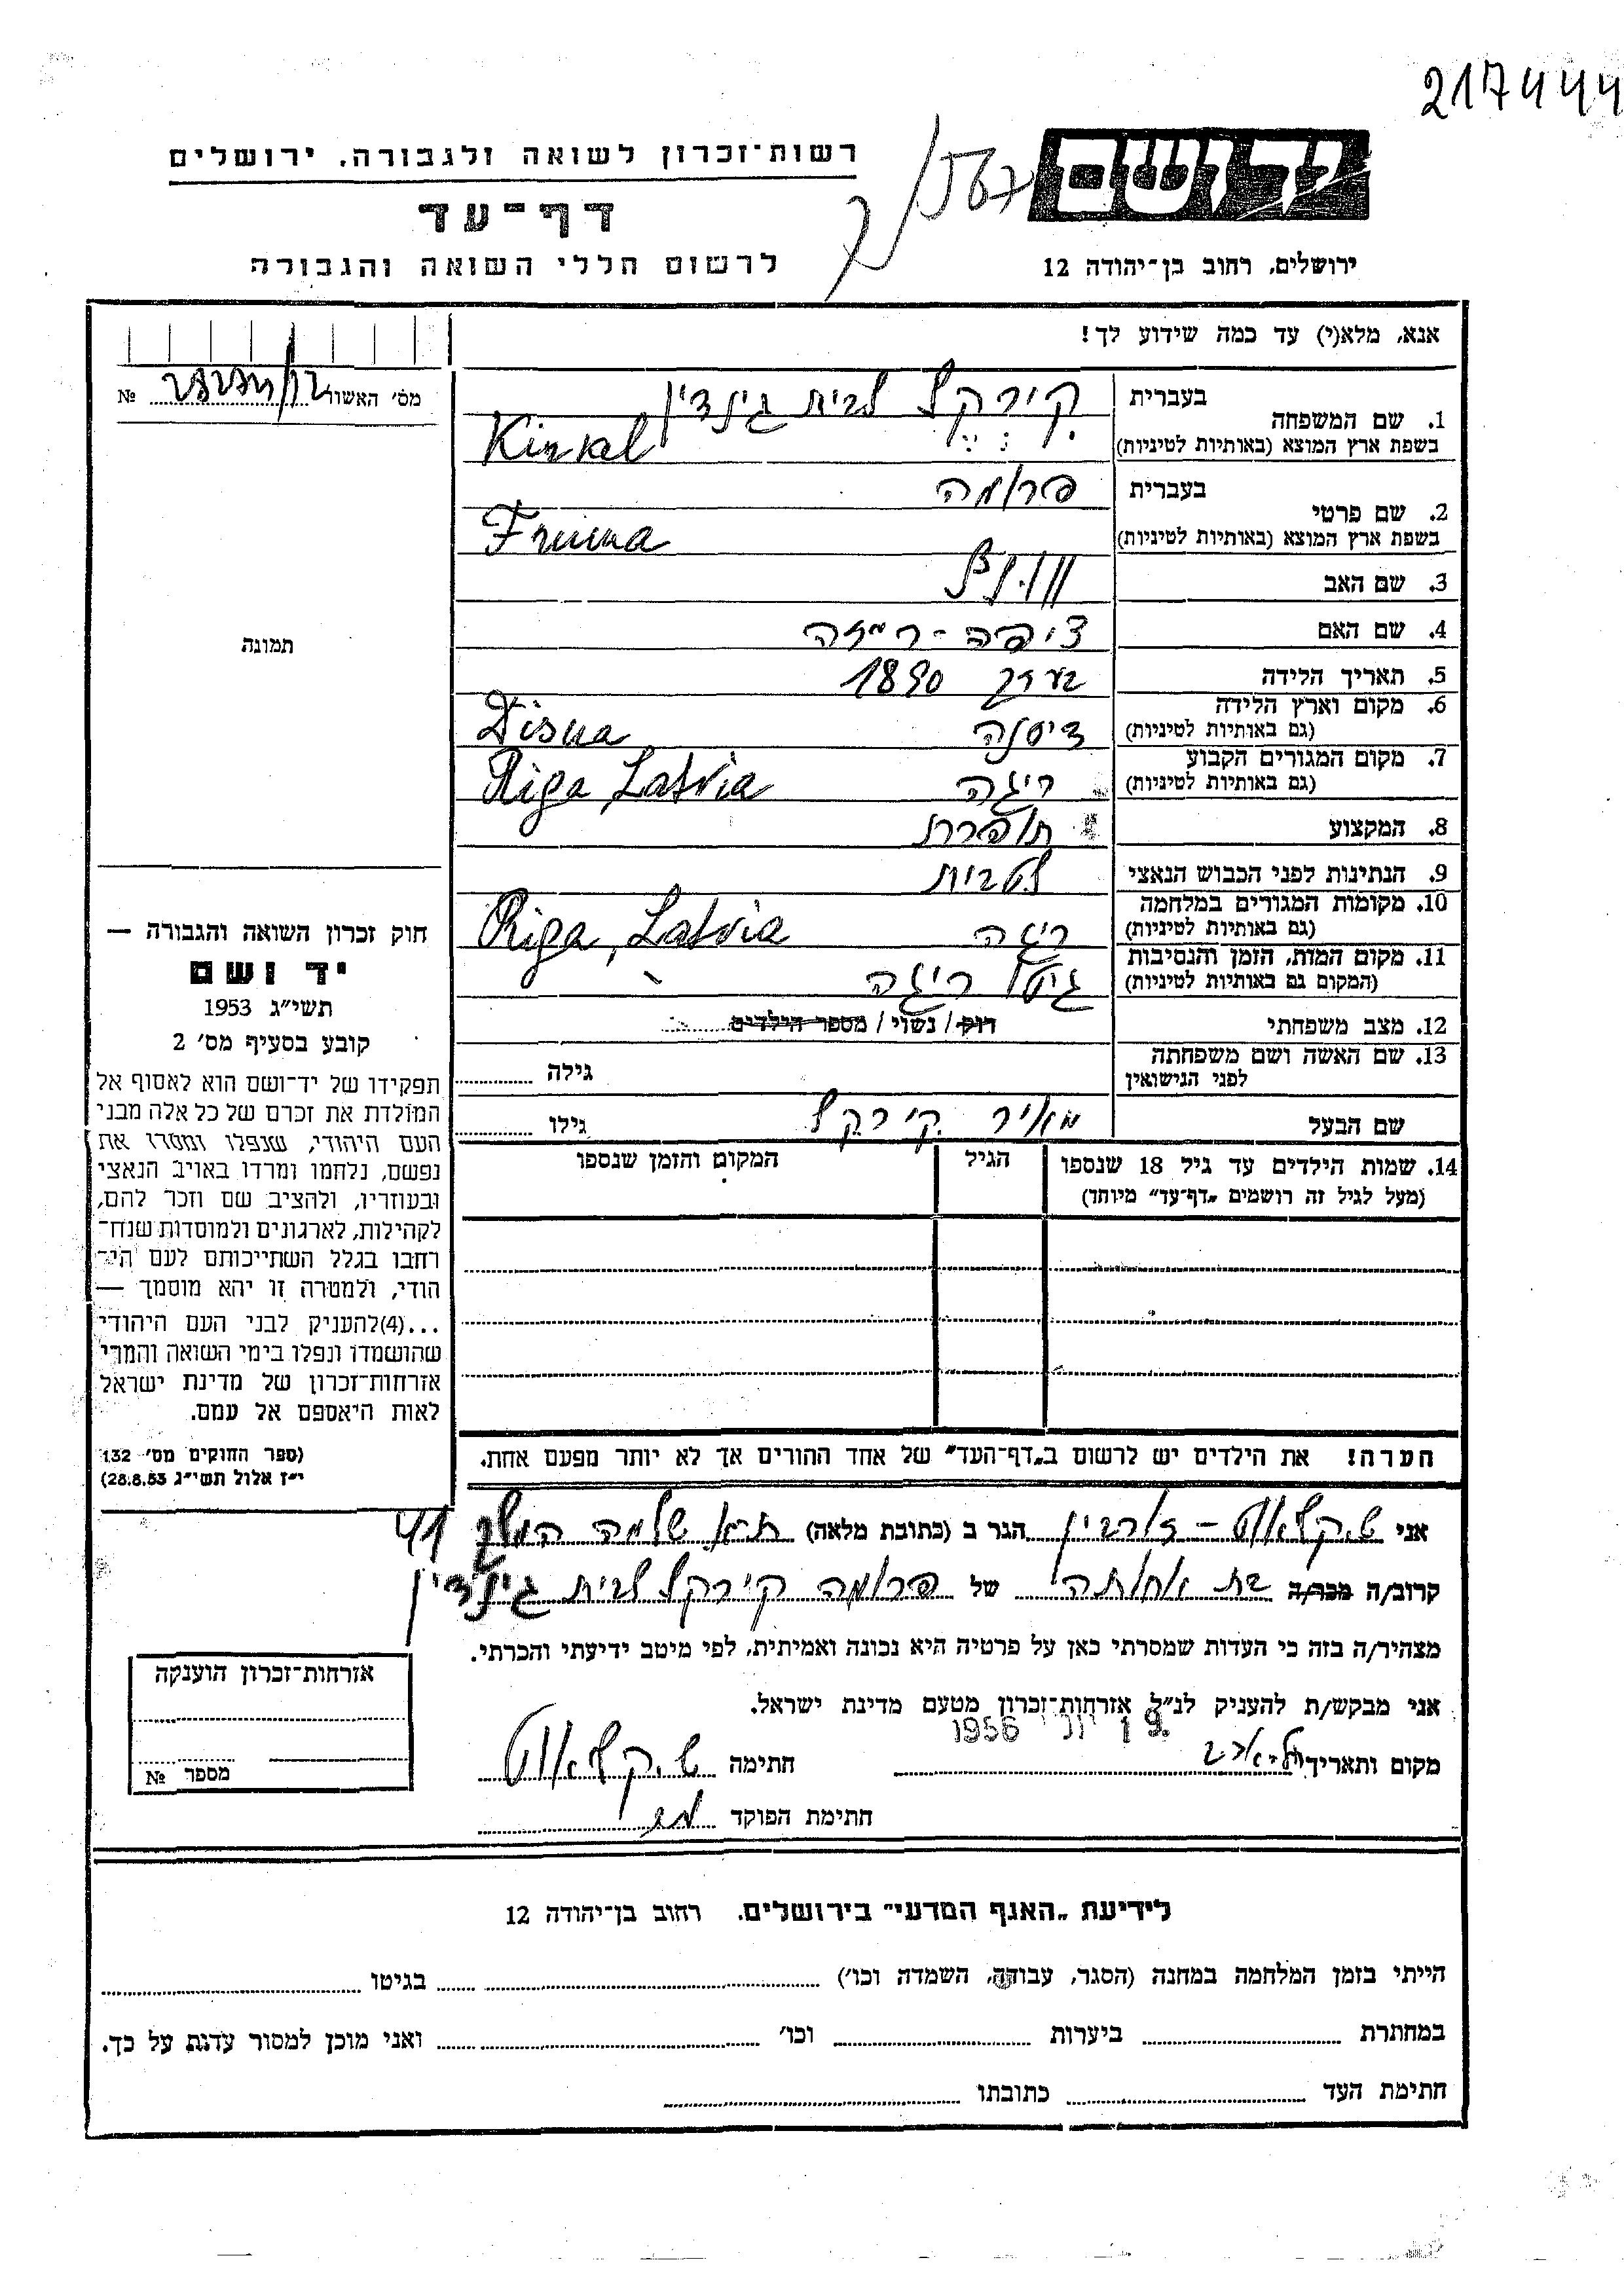 217444
רשות־זכרון לשואה ולגבורה, ירושלים
ידושם
דף־עד
לרשום חללי השואה והגבורה
ירושלים, רחוב בן־יהודה 12
אנא, מלא(י) עד כמה שידוע לך!
מס' האשור №
1. שם המשפחה בעברית קירקל לבית גינדין
בשפת ארץ המוצא (באותיות לטיניות) Kirkel
2. שם פרטי בעברית פרומה
בשפת ארץ המוצא (באותיות לטיניות) Fruma
3. שם האב
4. שם האם ציפה-ריזה
5. תאריך הלידה בערך 1890
6. מקום וארץ הלידה (גם באותיות לטיניות) דיסנה Disna
7. מקום המגורים הקבוע (גם באותיות לטיניות) ריגה Riga Latvia
8. המקצוע תופרת
9. הנתינות לפני הכבוש הנאצי לטבית
10. מקומות המגורים במלחמה (גם באותיות לטיניות) ריגה Riga, Latvia
11. מקום המות, הזמן והנסיבות (המקום גם באותיות לטיניות) גיטו ריגה
12. מצב משפחתי רווק / נשוי / מספר הילדים
13. שם האשה ושם משפחתה לפני הנישואין גילה
שם הבעל מאיר קירקל גילו
14. שמות הילדים עד גיל 18 שנספו הגיל המקום והזמן שנספו
(מעל לגיל זה רושמים „דף־עד" מיוחד)
הערה! את הילדים יש לרשום ב„דף־העד" של אחד ההורים אך לא יותר מפעם אחת.
תמונה
חוק זכרון השואה והגבורה —
יד ושם
תשי"ג 1953
קובע בסעיף מס' 2
תפקידו של יד־ושם הוא לאסוף אל
המולדת את זכרם של כל אלה מבני
העם היהודי, שנפלו ומסרו את
נפשם, נלחמו ומרדו באויב הנאצי
ובעוזריו, ולהציב שם וזכר להם,
לקהילות, לארגונים ולמוסדות שנח־
רבו בגלל השתייכותם לעם הי־
הודי, ולמטרה זו יהא מוסמך —
...(4)להעניק לבני העם היהודי
שהושמדו ונפלו בימי השואה והמרי
אזרחות־זכרון של מדינת ישראל
לאות היאספם אל עמם.
(ספר החוקים מס' 132
י"ז אלול תשי"ג 28.8.53)
אני הגר ב (כתובת מלאה) ת"א שלמה המלך 41
קרוב/ה מכר/ה בת אחותה של פרומה קירקל לבית גינדין
מצהיר/ה בזה כי העדות שמסרתי כאן על פרטיה היא נכונה ואמיתית, לפי מיטב ידיעתי והכרתי.
אני מבקש/ת להעניק לנ"ל אזרחות־זכרון מטעם מדינת ישראל.
1956
מקום ותאריך תל-אביב חתימה
חתימת הפוקד
אזרחות־זכרון הוענקה
מספר №
לידיעת „האגף המדעי" בירושלים, רחוב בן־יהודה 12
הייתי בזמן המלחמה במחנה (הסגר, עבודה, השמדה וכו') בגיטו
במחתרת ביערות וכו' ואני מוכן למסור עדות על כך.
חתימת העד כתובתו